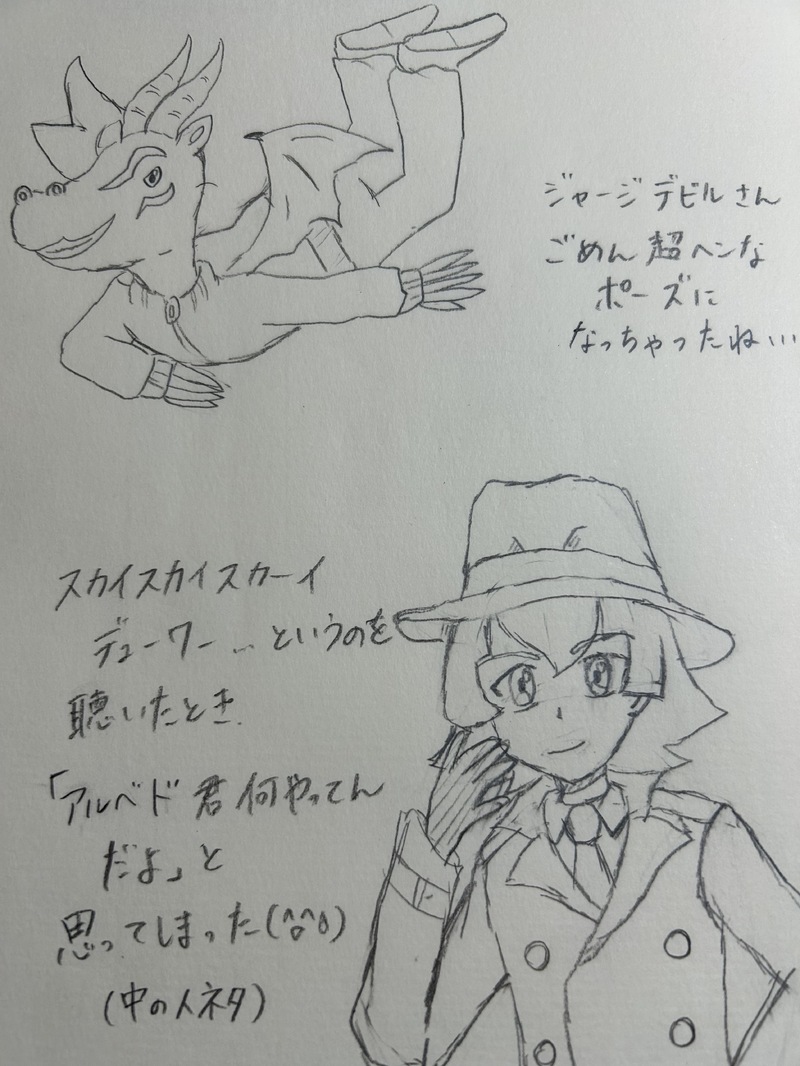 ジャージデビルさん
ごめん超ヘンな
ポーズに
なっちゃったね…
スカイスカイスカーイ
デューワー…というのを
聴いたとき
「アルベド君何やってん
だよ」と
思ってしまった(^o^;)
(中の人ネタ)